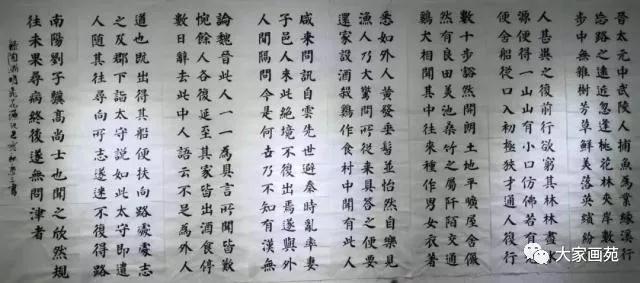 晉太元中武陵人捕魚為業緣溪行
忘路之遠近忽逢桃花林夾岸數
步中無雜樹芳草鮮美落英繽紛
人甚異之復前行欲窮其林林盡水
源便得一山山有小口仿佛若有
便舍船從口入初極狹才通人復行
數十步豁然開朗土地平曠屋舍儼
然有良田美池桑竹之屬阡陌交通
鷄犬相聞其中往來種作男女衣著
悉如外人黃發垂髫並怡然自樂見
漁人乃大驚問所從來具答之便要
還家設酒殺鷄作食村中聞有此人
咸來問訊自雲先世避秦時亂率妻
子邑人來此絕境不復出焉遂與外
人間隔問今是何世乃不知有漢無
論魏晉此人一一為具言所聞皆歎
惋餘人各復延至其家皆出酒食停
數日辭去此中人語云不足為外人
道也既出得其船便扶向路處處志
之及郡下詣太守說如此太守即遣
人隨其往尋向所志遂迷不復得路
南陽劉子驥高尚士也聞之欣然規
往未果尋病終後遂無問津者
錄陶淵明桃花源記
大家画苑